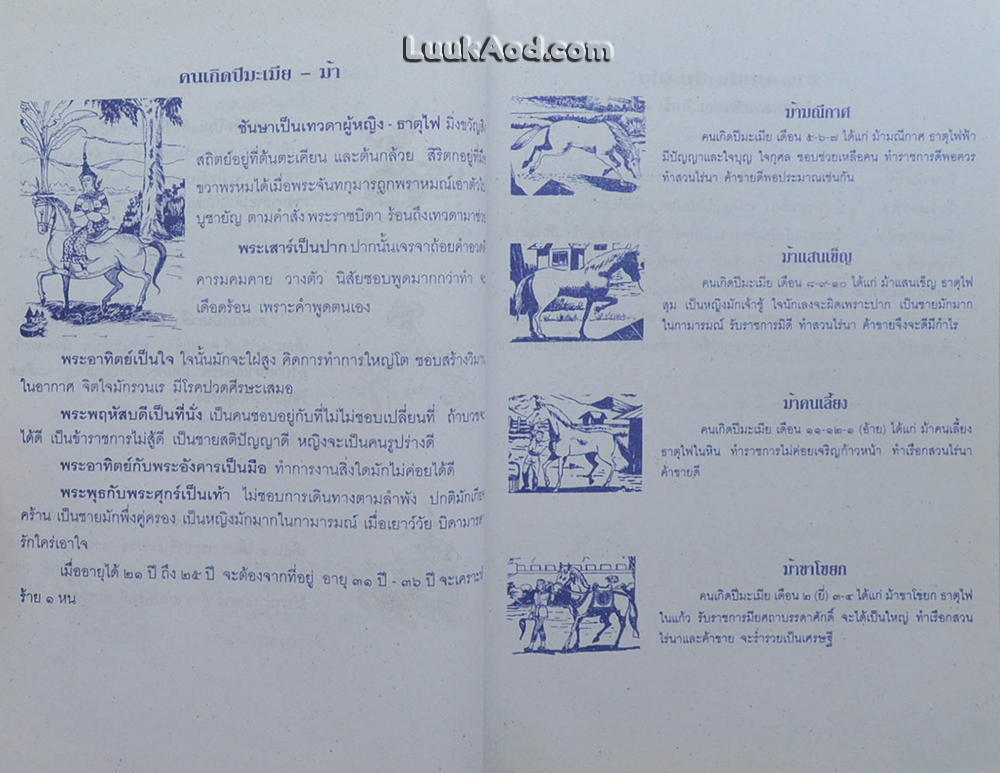 LuukAod.com
คนเกิดปีมะเมีย - ม้า
ชันษาเป็นเทวดาผู้หญิง - ธาตุไฟ มิ่งขวัญ
สถิตย์อยู่ที่ต้นตะเคียน และต้นกล้วย สิริตกอยู่ที่
ขวาพรหมได้เมื่อพระจันทกุมารถูกพราหมณ์เอาตัว
บูชายัญ ตามคำสั่งพระราชบิดา ร้อนถึงเทวดามา
พระเสาร์เป็นปาก ปากนั้นเจรจาถ้อยคำ
คารมคมคาย วางตัว นิสัยชอบพูดมากกว่าทำ
เดือดร้อน เพราะคำพูดตนเอง
พระอาทิตย์เป็นใจ ใจนั้นมักจะใฝ่สูง คิดการทำการใหญ่โต ชอบสร้าง
ในอากาศ จิตใจมักรวนเร มีโรคปวดศีรษะเสมอ
พระพฤหัสบดีเป็นที่นั่ง เป็นคนชอบอยู่กับที่ไม่ไม่ชอบเปลี่ยนที่ ถ้า
ได้ดี เป็นข้าราชการไม่สู้ดี เป็นชายสติปัญญาดี หญิงจะเป็นคนรูปร่างดี
พระอาทิตย์กับพระอังคารเป็นมือ ทำการงานสิ่งใดมักไม่ค่อยได้ดี
พระพุธกับพระศุกร์เป็นเท้า ไม่ชอบการเดินทางตามลำพัง ปกติมัก
คร้าน เป็นชายมักพึ่งคู่ครอง เป็นหญิงมักมากในกามารมณ์ เมื่อเยาว์วัย
รักใคร่เอาใจ
เมื่ออายุได้ ๒๑ ปี ถึง ๒๕ ปี จะต้องจากที่อยู่ อายุ ๓๑ ปี - ๓๖ ปี
ร้าย ๑ หน
ม้ามณีกาศ
คนเกิดปีมะเมีย เดือน ๕-๖-๗ ได้แก่ ม้ามณีกาศ ธาตุไฟฟ้า
มีปัญญาและใจบุญ ใจกุศล ชอบช่วยเหลือคน ทำราชการดีพอควร
ทำสวนไร่นา ค้าขายดีพอประมาณเช่นกัน
ม้าแสนเข็ญ
คนเกิดปีมะเมีย เดือน ๘-๙-๑๐ ได้แก่ ม้าแสนเข็ญ ธาตุไฟ
สุม เป็นหญิงมักเจ้าชู้ ใจนักเลงจะผิดเพราะปาก เป็นชายมักมาก
ในกามารมณ์ รับราชการมิดี ทำสวนไร่นา ค้าขายจึงจะดีมีกำไร
ม้าคนเลี้ยง
คนเกิดปีมะเมีย เดือน ๑๑-๑๒-๑ (อ้าย) ได้แก่ ม้าคนเลี้ยง
ธาตุไฟในหิน ทำราชการไม่ค่อยเจริญก้าวหน้า ทำเรือกสวนไร่นา
ค้าขายดี
ม้าขาโขยก
คนเกิดปีมะเมีย เดือน ๒ (ยี่) ๓-๔ ได้แก่ ม้าขาโขยก ธาตุไฟ
ในแก้ว รับราชการมียศถาบรรดาศักดิ์ จะได้เป็นใหญ่ ทำเรือกสวน
ไร่นาและค้าขาย จะร่ำรวยเป็นเศรษฐี